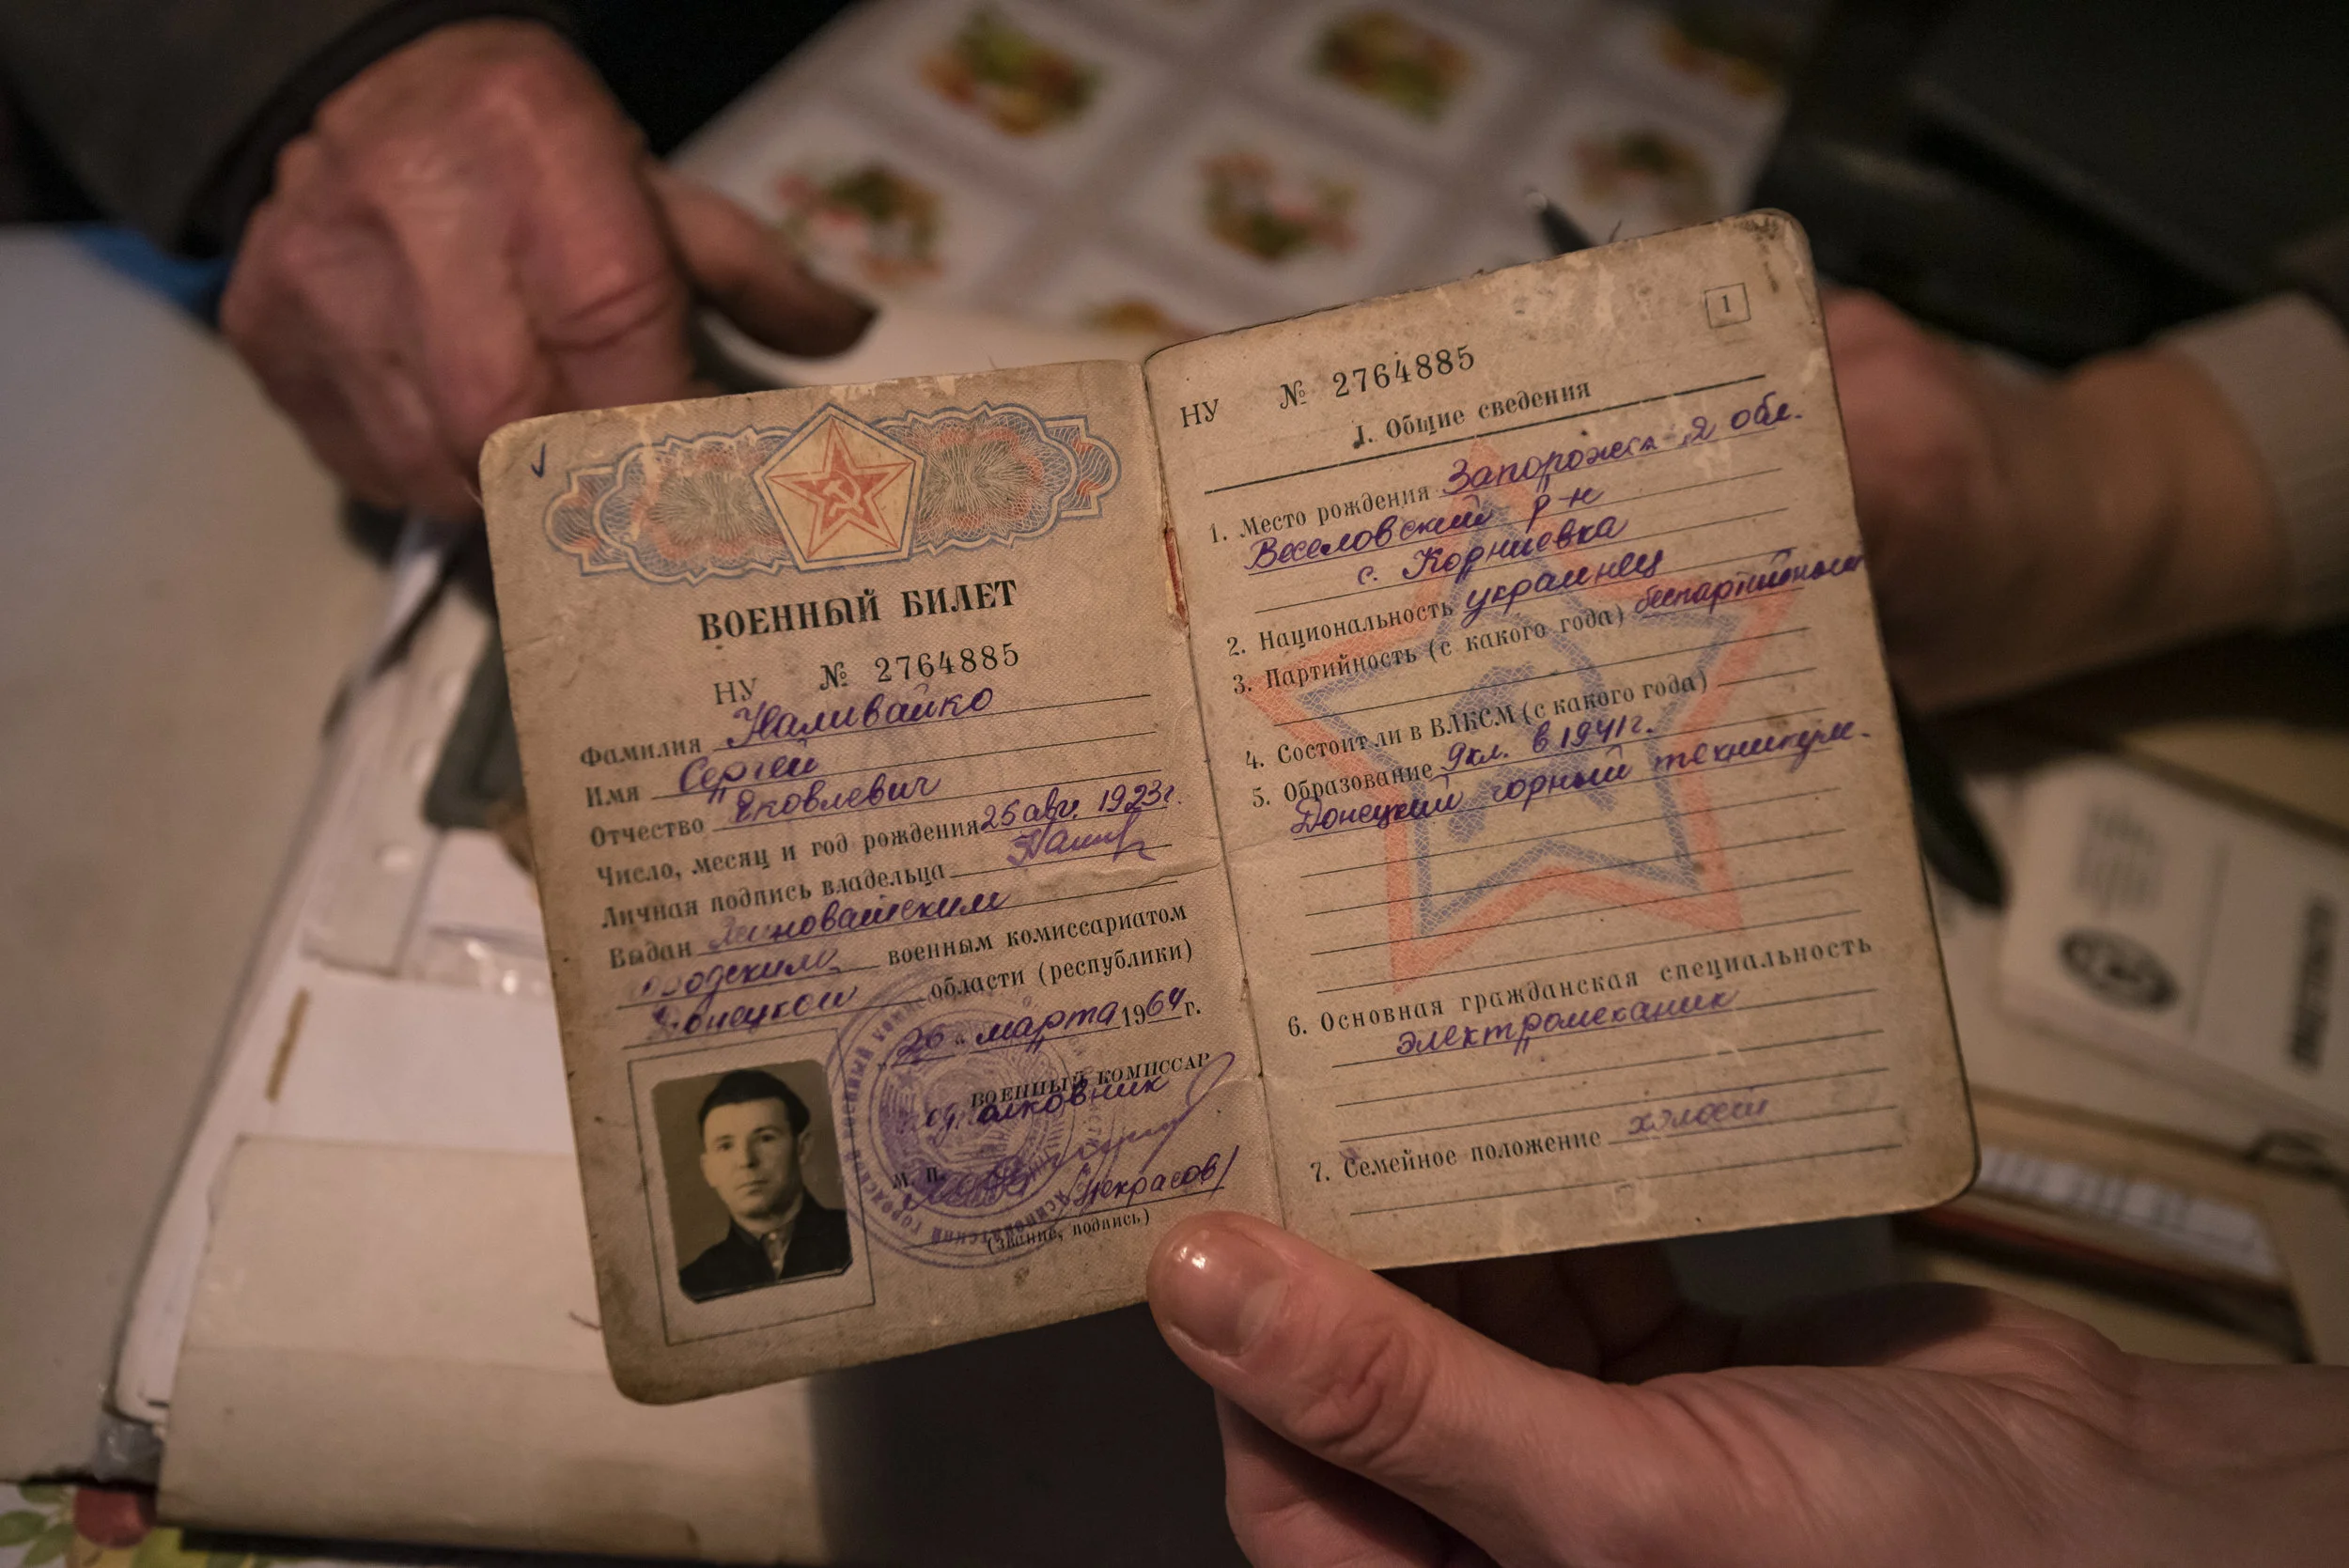 ВОЕННЫЙ БИЛЕТ
НУ № 2764885
Фамилия Наливайко
Имя Сергей
Отчество Яковлевич
Число, месяц и год рождения 25 авг. 1923г.
Личная подпись владельца
Выдан Ясиноватским
городским военным комиссариатом
Донецкой области (республики)
„26 " марта 1964 г.
ВОЕННЫЙ КОМИССАР
подполковник
М. П.
(Некрасов)
(звание, подпись)
1
НУ № 2764885
I. Общие сведения
1. Место рождения Запорожская обл.
Веселовский р-н
с. Корниевка
2. Национальность украинец
3. Партийность (с какого года) беспартийный
4. Состоит ли в ВЛКСМ (с какого года)
5. Образование 9кл. в 1941г.
Донецкий горный техникум.
6. Основная гражданская специальность
электромеханик
7. Семейное положение холост